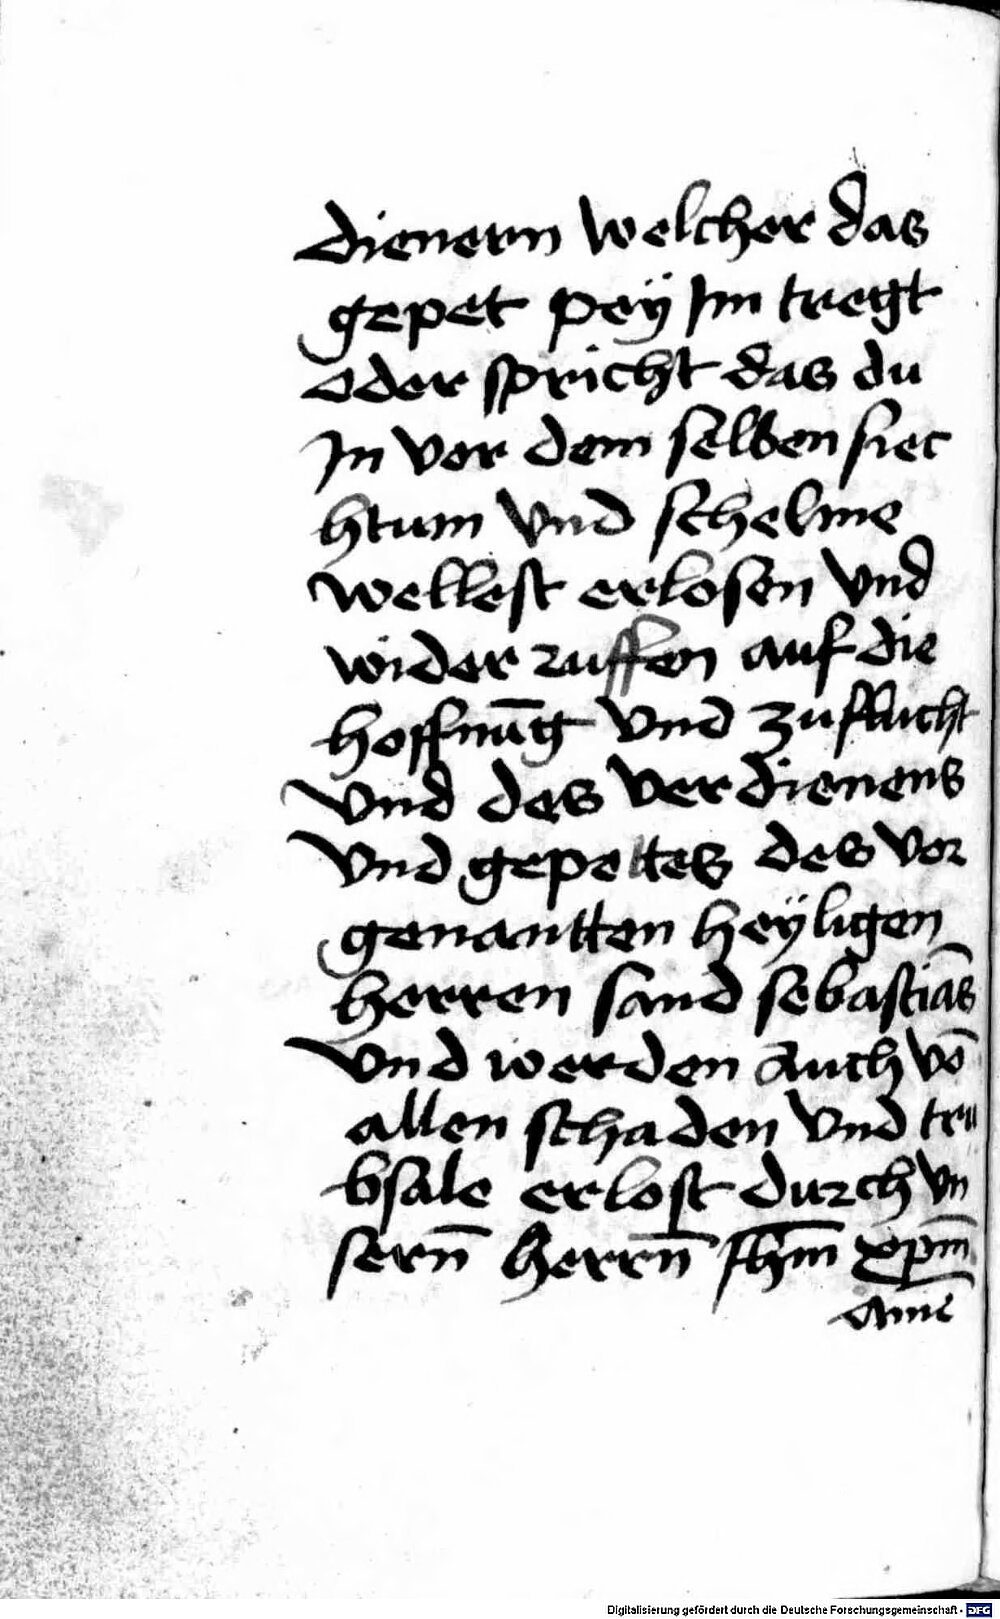 dienern welcher das
gepet peÿ Im tregt
oder spricht das du
In vor dem selben siec
htum vnd schelme
wellest erlosen vnd
wider ruffen auf die
hoffnūg vnd zuflucht
vnd des verdienens
vnd gepettes des vor
genantten heÿligen
herren sand sebastiās
vnd werden auch vō
allen schaden vnd tru
bsale erlost durch vn
sern̄ herrn̄ Ihm̄ xpm̄
Amē
Digitalisierung gefördert durch die Deutsche Forschungsgemeinschaft - DFG